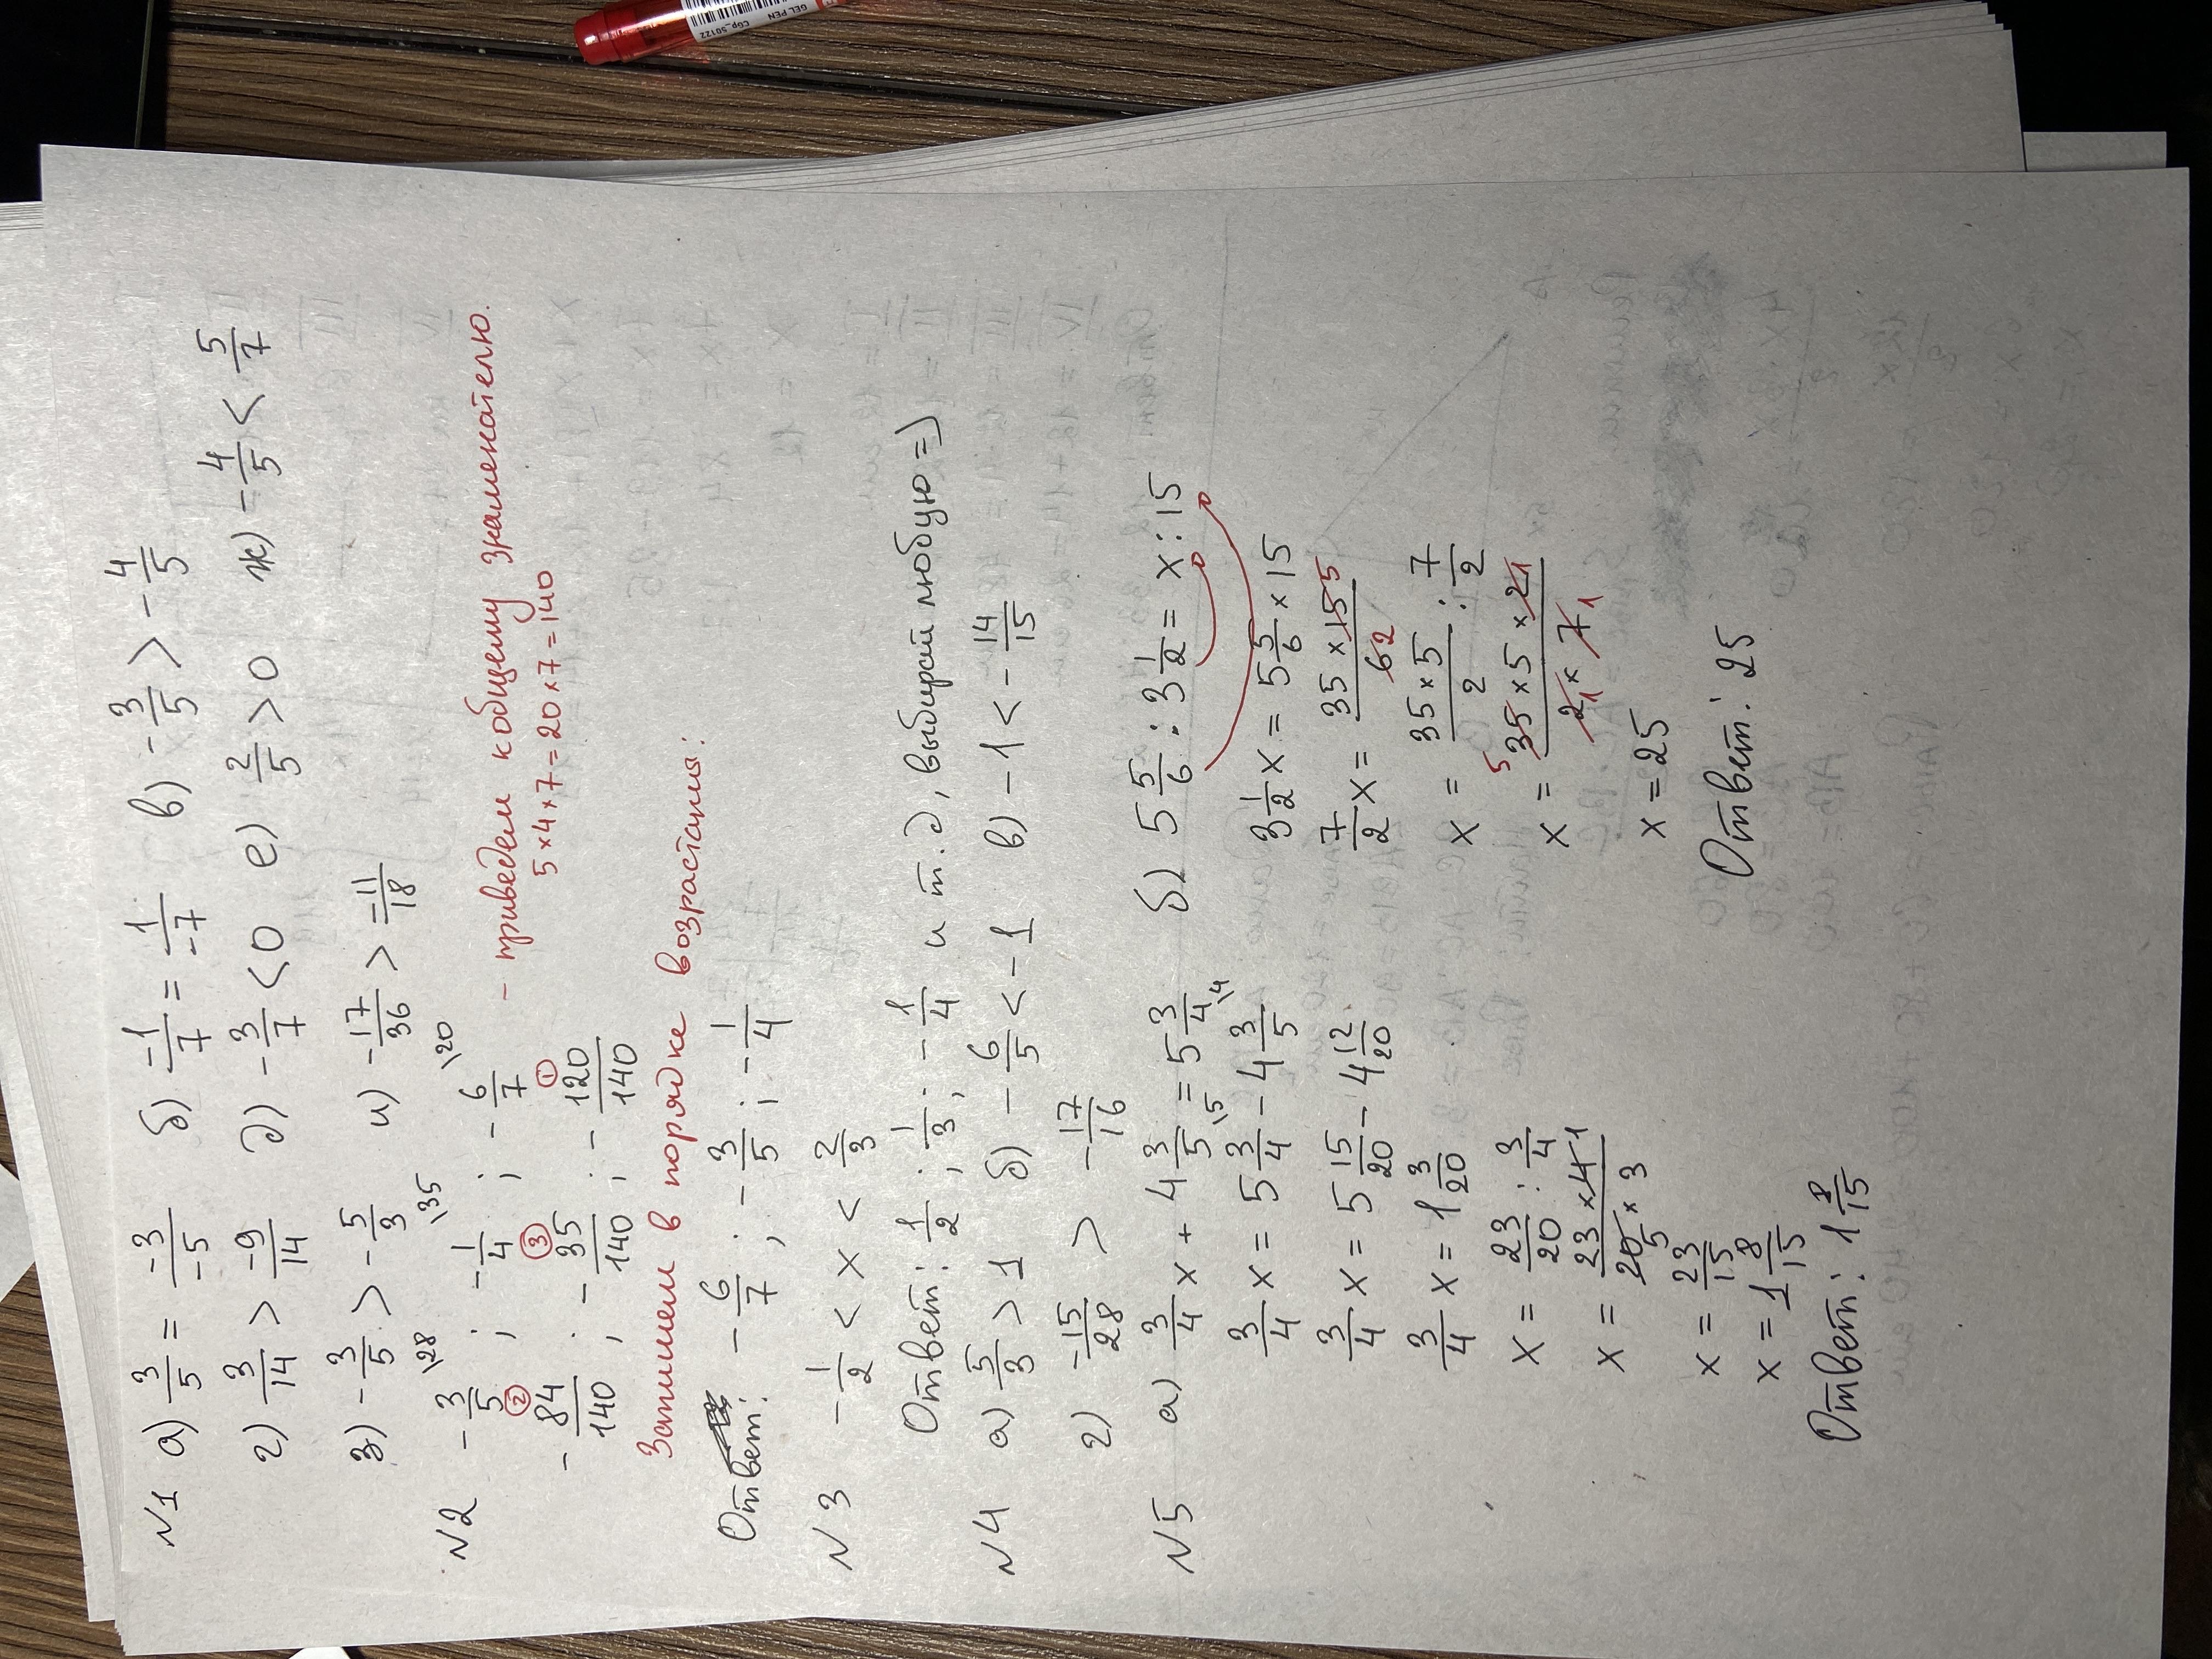 N1 а) 3/5 = -3/-5 б) -1/7 = 1/-7 в) -3/5 > -4/5
г) 3/14 > -9/14 д) -3/7 < 0 е) 2/5 > 0 ж) -4/5 < 5/7
з) -3/5 > -5/3 и) -17/36 > -11/18
N2 -3/5 \28 ; -1/4 \35 ; -6/7 \20 - приведем к общему знаменателю.
② ③ ① 5×4×7=20×7=140
-84/140 ; -35/140 ; -120/140
Запишем в порядке возрастания:
Ответ: -6/7 ; -3/5 ; -1/4
N3 -1/2 < x < 2/3
Ответ: 1/2 ; 1/3 ; -1/4 и т.д, выбирай любую =)
N4 а) 5/3 > 1 б) -6/5 < -1 в) -1 < -14/15
г) -15/28 > -17/16
N5 а) 3/4 x + 4 3/5 = 5 3/4
3/4 x = 5 3/4 \5 - 4 3/5 \4
3/4 x = 5 15/20 - 4 12/20
3/4 x = 1 3/20
x = 23/20 : 3/4
x = 23 × 4 1 / 20 5 × 3
x = 23/15
x = 1 8/15
Ответ: 1 8/15
б) 5 5/6 : 3 1/2 = x : 15
3 1/2 x = 5 5/6 × 15
7/2 x = 35 × 15 5 / 6 2
x = 35 × 5 / 2 : 7/2
x = 5 35 × 5 × 2 1 / 2 1 × 7 1
x = 25
Ответ: 25
GEL PEN
CGp_50122